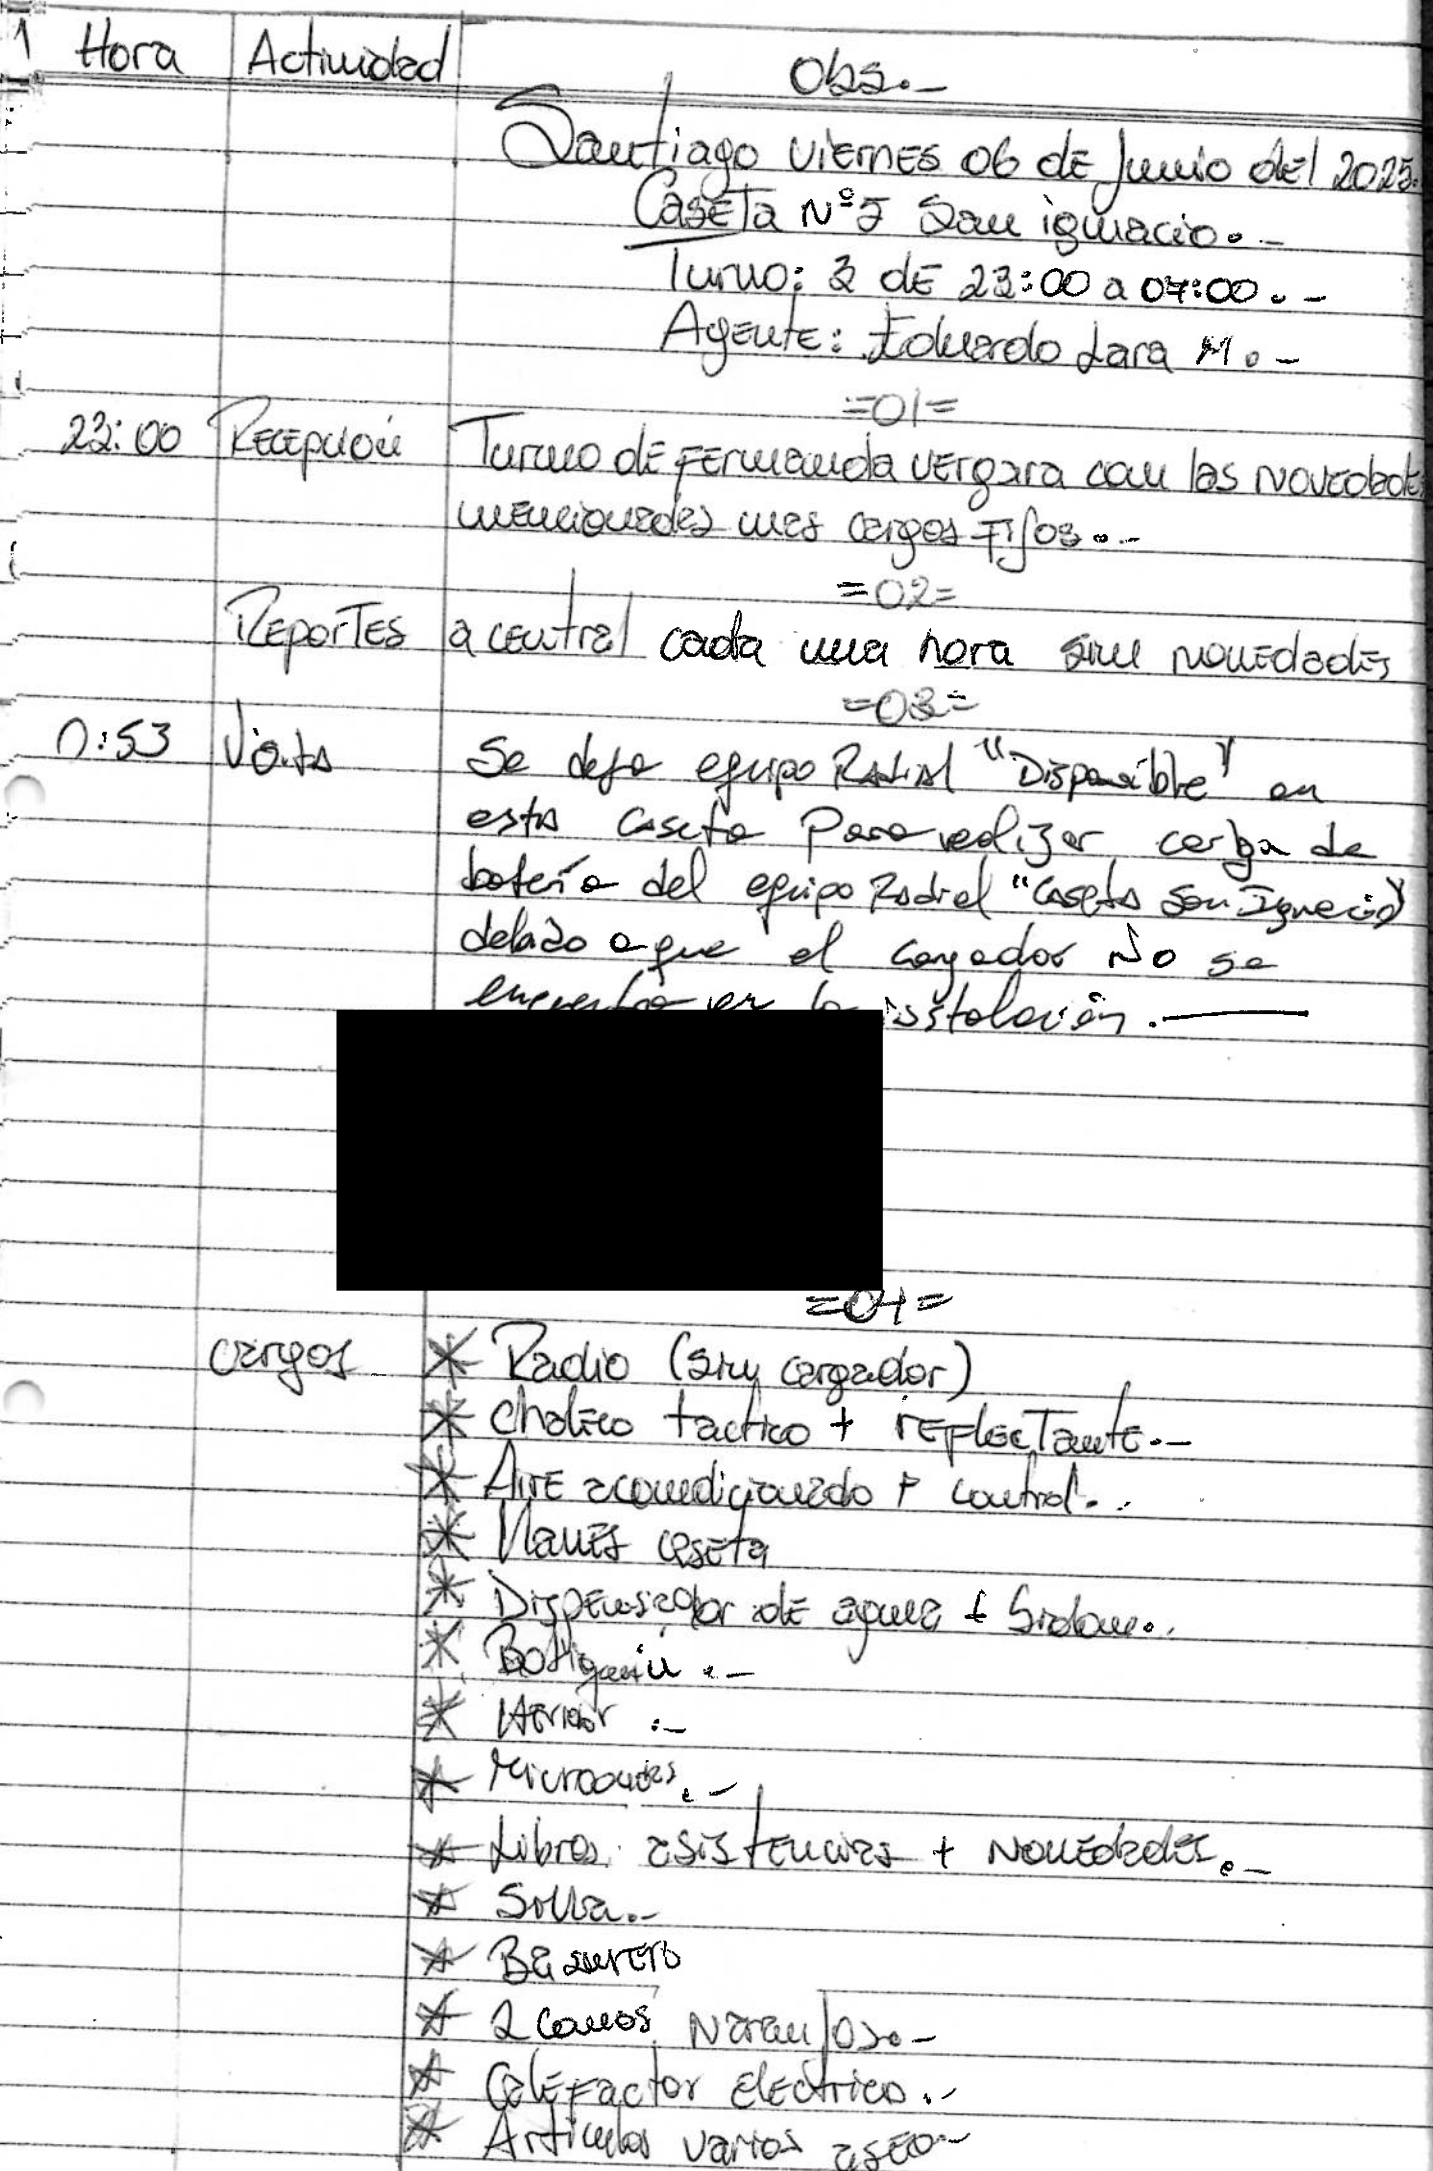 1 Hora Actividad Obs.-
Santiago viernes 06 de Junio del 2025.
Caseta N°5 San ignacio.-
Turno: 3 de 23:00 a 07:00.-
Agente: Eduardo Lara M.-
=01=
23:00 Recepción Turno de Fernanda Vergara con las novedades
mencionadas mas cargos fijos.-
=02=
Reportes a central cada una hora sin novedades
=03=
0:53 Visita Se deja equipo Radial "Disponible" en
esta caseta Para realizar carga de
batería del equipo Radial "Caseta San Ignacio"
debido a que el cargador No se
encuentra en la instalación.
=04=
cargos * Radio (sin cargador)
* Chaleco tactico + reflectante.-
* Aire acondicionado + control.
* Llaves caseta
* Dispensador de agua + Bidon.
* Botiquín.-
* Hervidor.-
* Microondas.-
* Libros asistencias + Novedades.-
* Silla.-
* Basurero
* 2 Conos Naranjos.-
* Calefactor electrico.-
* Articulos varios aseo.-